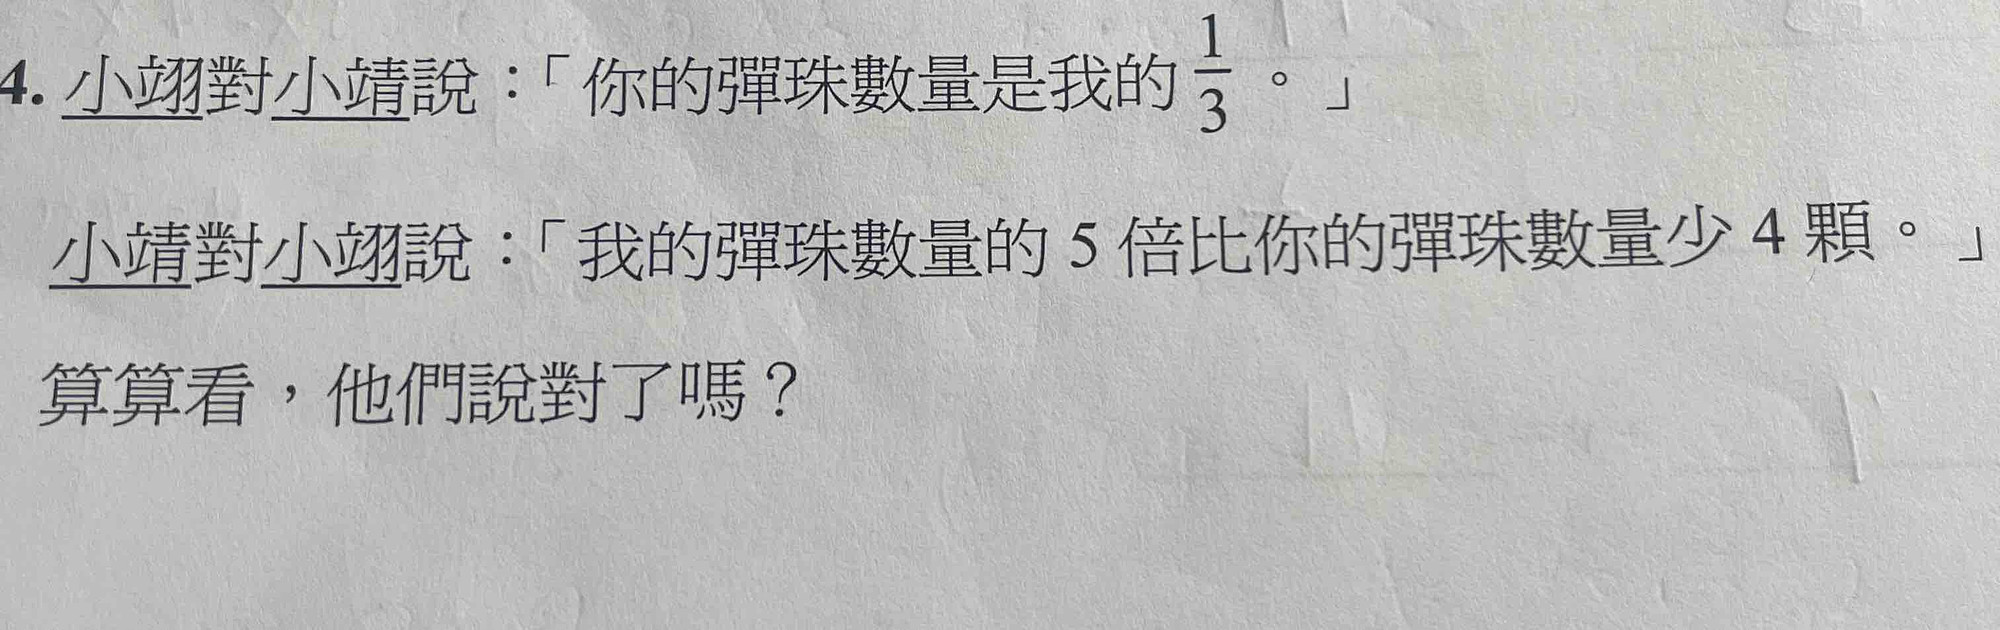 4. 小翊對小靖說：「你的彈珠數量是我的 1/3 。」
小靖對小翊說：「我的彈珠數量的 5 倍比你的彈珠數量少 4 顆。」
算算看，他們說對了嗎？